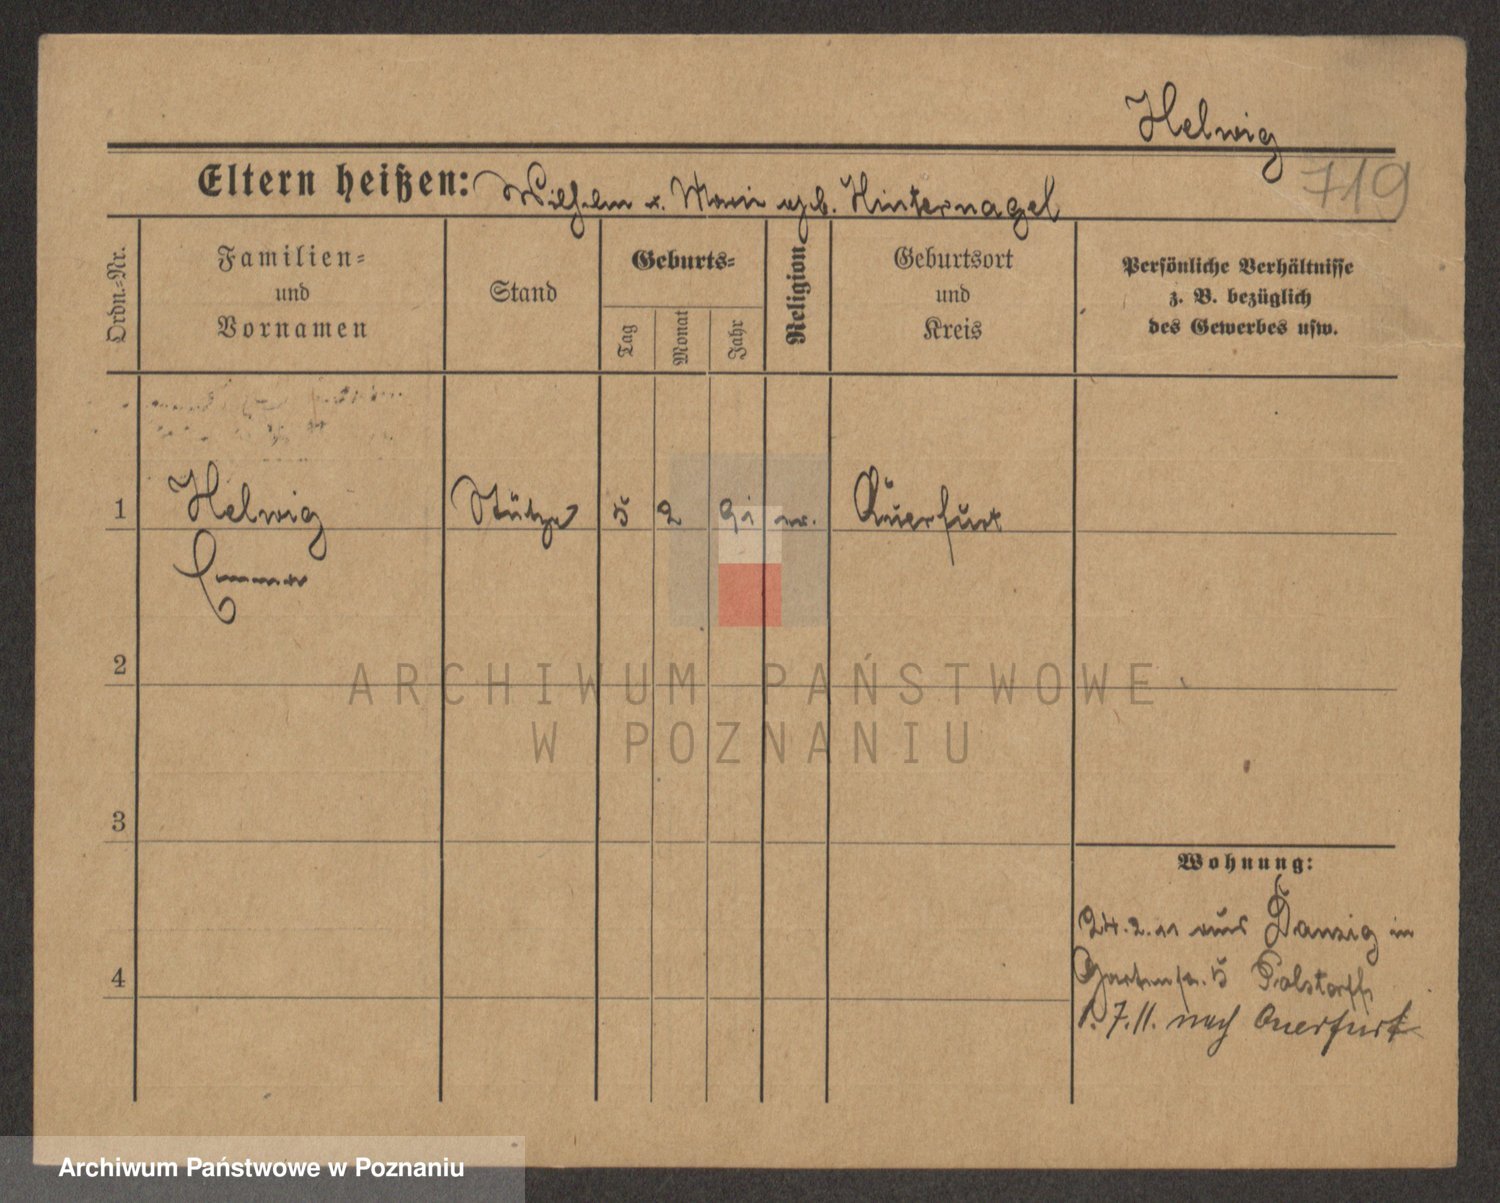 Helwig
719
Eltern heißen: Wilhelm u. Marie geb. Hinternagel
Ordn.=Nr.
Familien=
und
Vornamen
Stand
Geburts=
Tag
Monat
Jahr
Religion
Geburtsort
und
Kreis
Persönliche Verhältnisse
z. B. bezüglich
des Gewerbes usw.
1 Helwig Stütze 5 2 91 ev. Querfurt
Emma
2
3
4
Wohnung:
24.2.11 aus Danzig in
Gartenstr. 5 Polstorff
1.7.11. nach Querfurt
ARCHIWUM PAŃSTWOWE
W POZNANIU
Archiwum Państwowe w Poznaniu